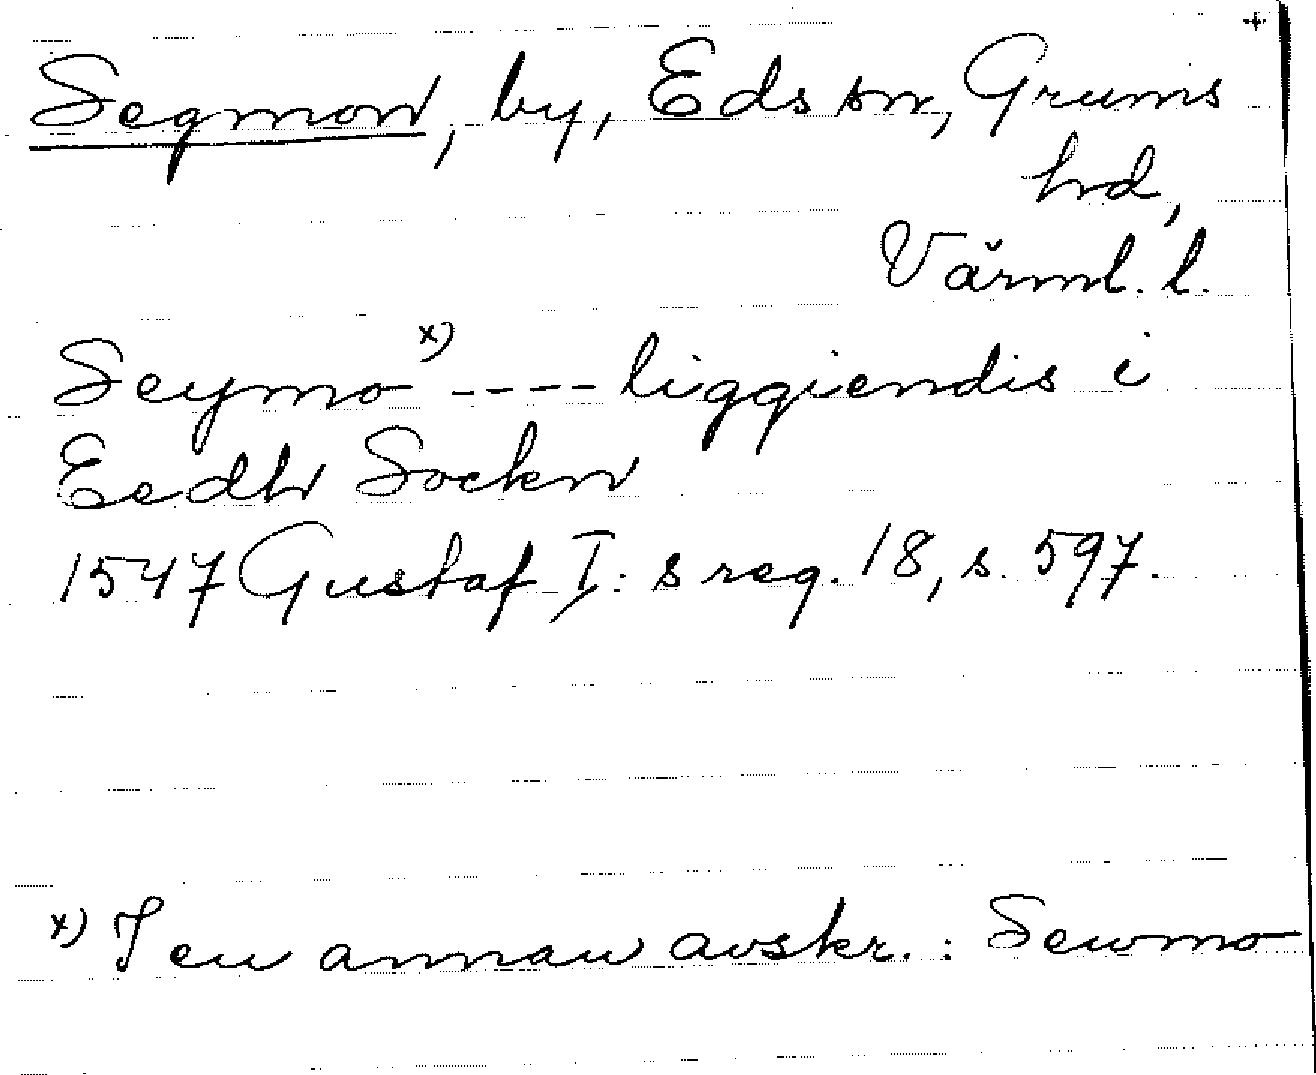 Segmon, by, Eds sn, Grums
hd,
Värml. l.
Seymo x) ---- liggiendis i
Eedh Sockn
1547 Gustaf I: s reg. 18, s. 597.
x) I en annan avskr. : Sewmo